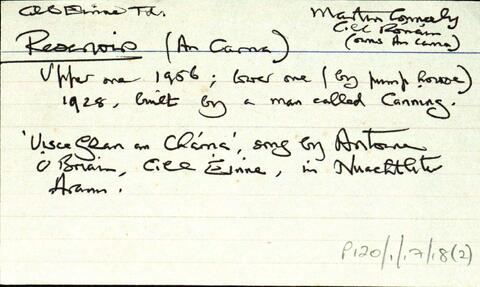 Cill Einne Td.
Martin Conneely
Cill Rónáin
(owns An Carna)
Reservoirs (An Carna)
Upper one 1956; lower one (by pump house)
1928, built by a man called Canning.
'Uisce Glan an Chárna', song by Antoine
Ó Briain, Cill Éinne, in Nuachtlitir
Árann.
P120/1/17/18(2)